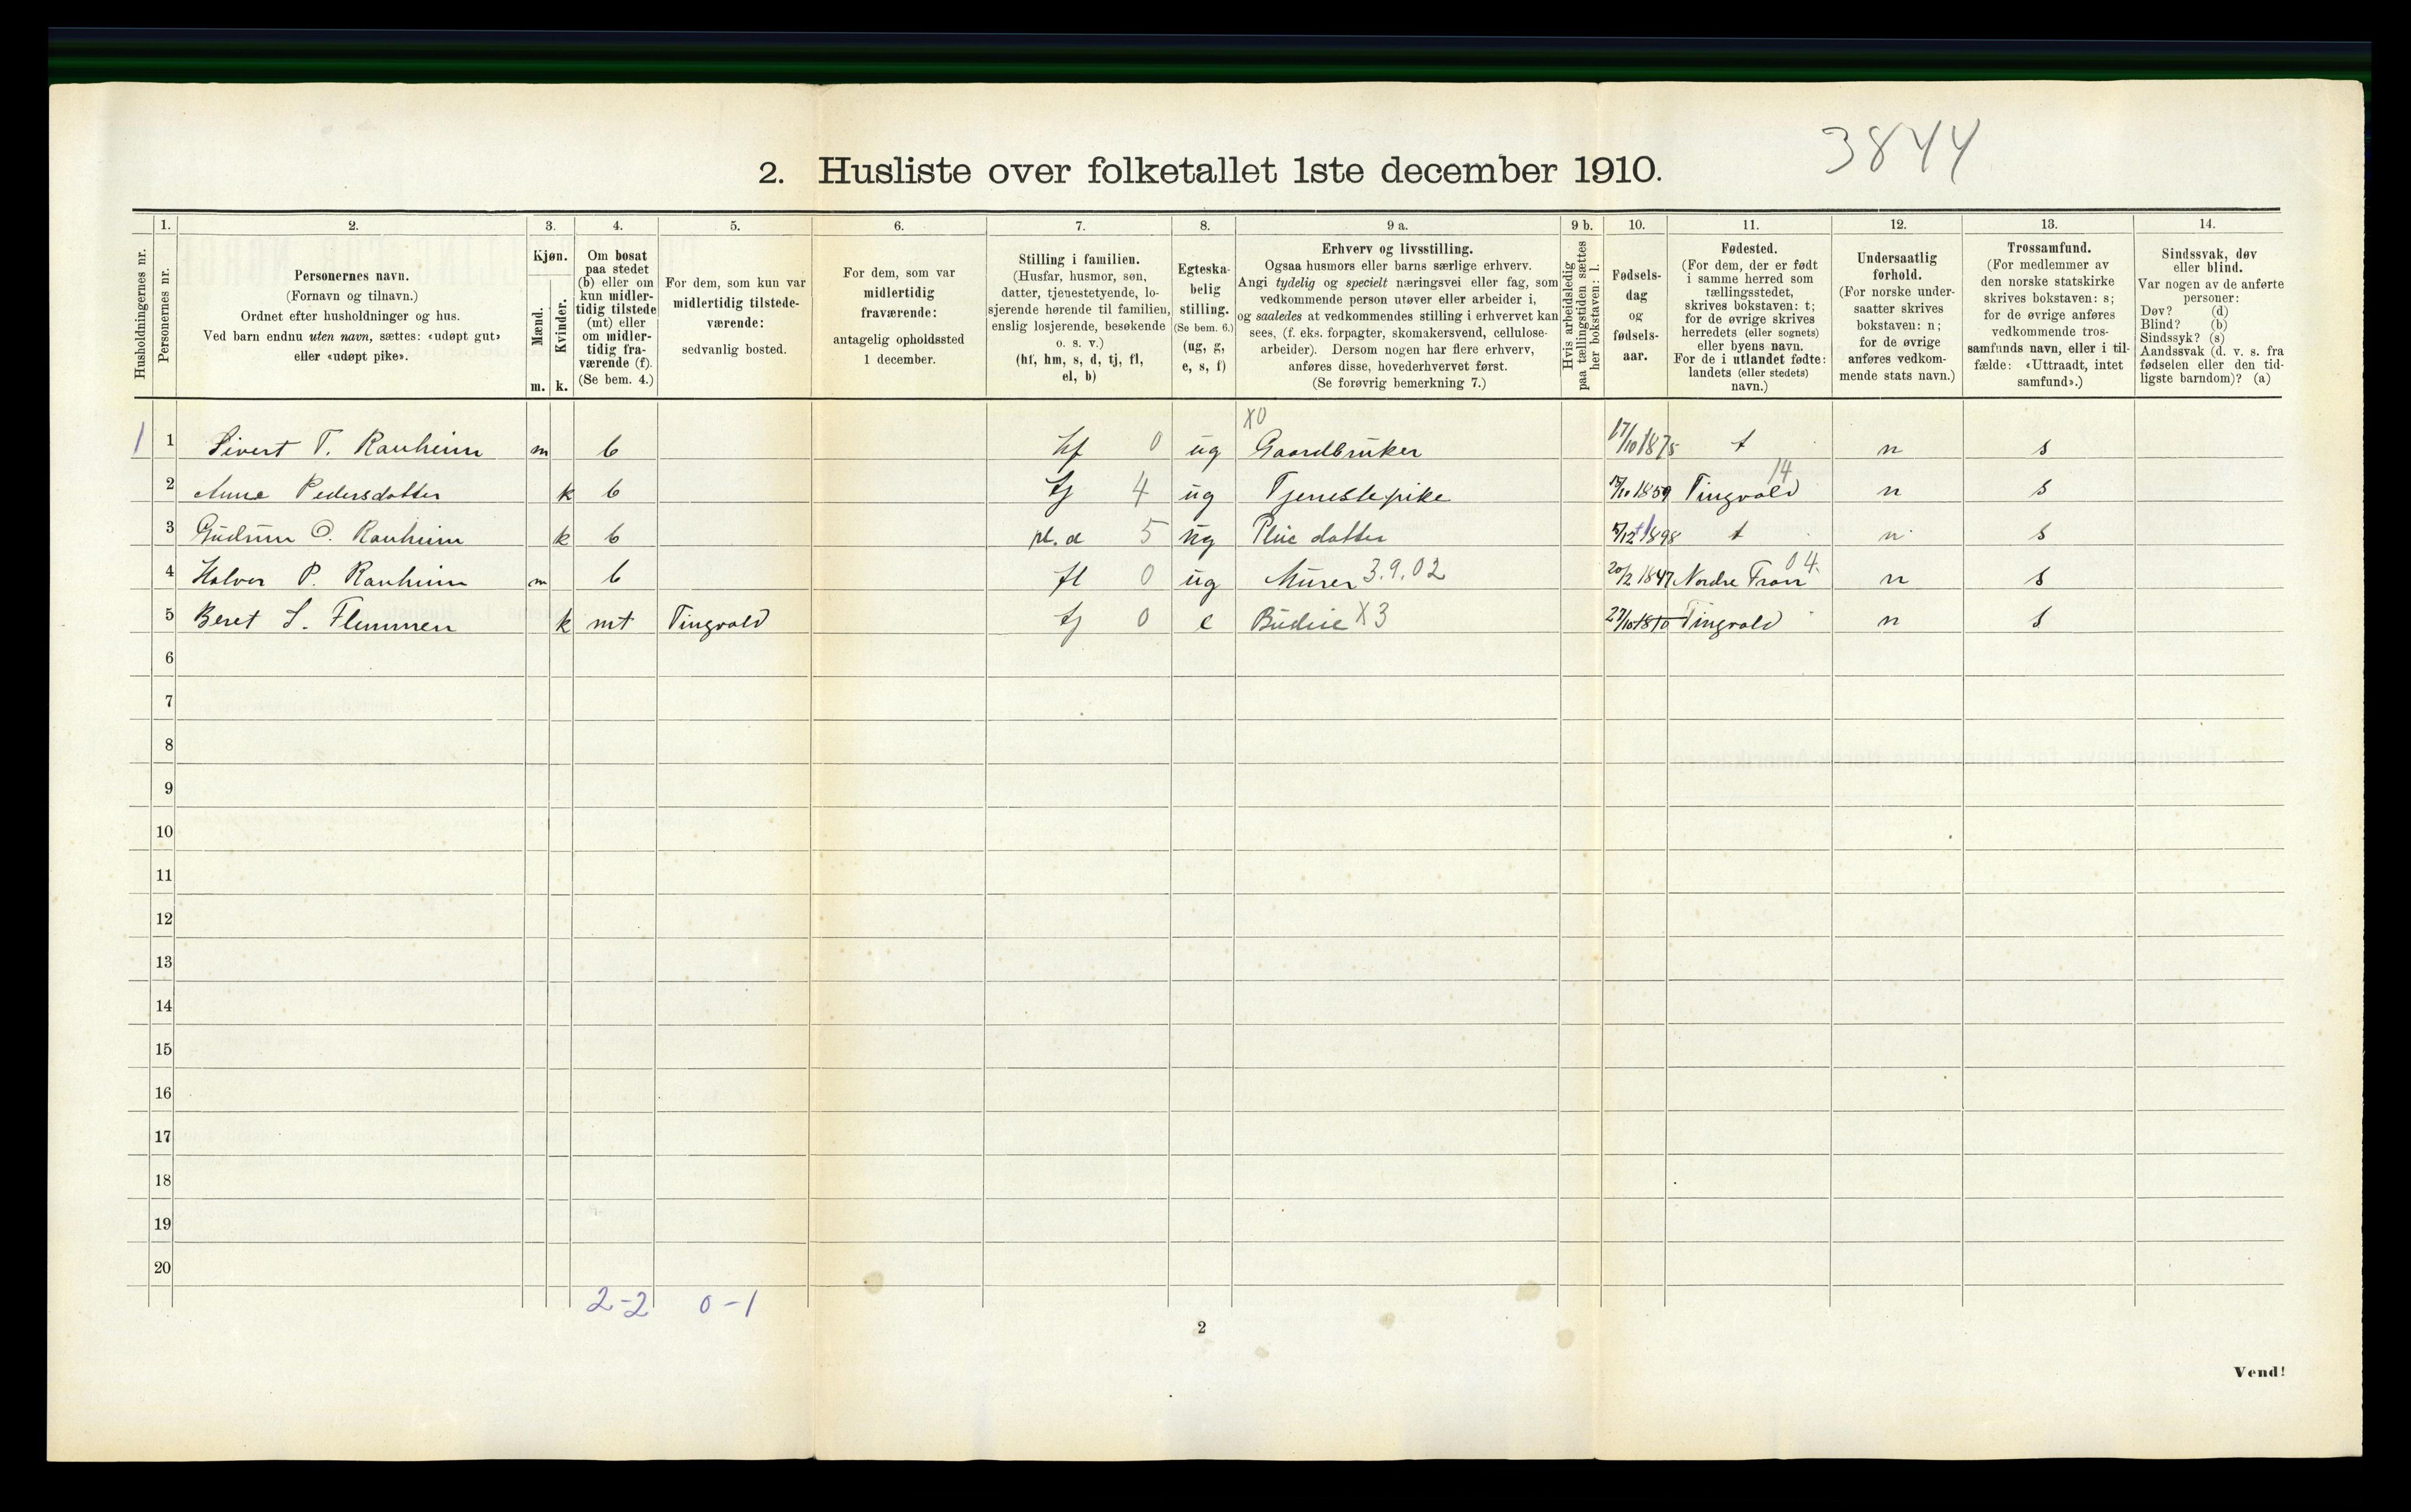 3844
2. Husliste over folketallet 1ste december 1910.
Husholdningernes nr.
1.
Personernes nr.
2.
Personernes navn.
(Fornavn og tilnavn.)
Ordnet efter husholdninger og hus.
Ved barn endnu uten navn, sættes: «udøpt gut»
eller «udøpt pike».
3.
Kjøn.
Mænd.
Kvinder.
m. k.
4.
Om bosat
paa stedet
(b) eller om
kun midler-
tidig tilstede
(mt) eller
om midler-
tidig fra-
værende (f).
(Se bem. 4.)
5.
For dem, som kun var
midlertidig tilstede-
værende:
sedvanlig bosted.
6.
For dem, som var
midlertidig
fraværende:
antagelig opholdssted
1 december.
7.
Stilling i familien.
(Husfar, husmor, søn,
datter, tjenestetyende, lo-
sjerende hørende til familien,
enslig losjerende, besøkende
o. s. v.)
(hf, hm, s, d, tj, fl,
el, b)
8.
Egteska-
belig
stilling.
(Se bem. 6.)
(ug, g,
e, s, f)
9 a.
Erhverv og livsstilling.
Ogsaa husmors eller barns særlige erhverv.
Angi tydelig og specielt næringsvei eller fag, som
vedkommende person utøver eller arbeider i,
og saaledes at vedkommendes stilling i erhvervet kan
sees, (f. eks. forpagter, skomakersvend, cellulose-
arbeider). Dersom nogen har flere erhverv,
anføres disse, hovederhvervet først.
(Se forøvrig bemerkning 7.)
9 b.
Hvis arbeidsledig
paa tællingstiden sættes
her bokstaven: l.
10.
Fødsels-
dag
og
fødsels-
aar.
11.
Fødested.
(For dem, der er født
i samme herred som
tællingsstedet,
skrives bokstaven: t;
for de øvrige skrives
herredets (eller sognets)
eller byens navn.
For de i utlandet fødte:
landets (eller stedets)
navn.)
12.
Undersaatlig
forhold.
(For norske under-
saatter skrives
bokstaven: n;
for de øvrige
anføres vedkom-
mende stats navn.)
13.
Trossamfund.
(For medlemmer av
den norske statskirke
skrives bokstaven: s;
for de øvrige anføres
vedkommende tros-
samfunds navn, eller i til-
fælde: «Uttraadt, intet
samfund».)
14.
Sindssvak, døv
eller blind.
Var nogen av de anførte
personer:
Døv? (d)
Blind? (b)
Sindssyk? (s)
Aandssvak (d. v. s. fra
fødselen eller den tid-
ligste barndom)? (a)
X0
1 1 Sivert T. Ranheim m b hf 0 ug Gaardbruker 17/10 1875 t n s
14
2 Anne Pedersdatter k b tj 4 ug Tjenestepike 1859 Tingvold n s
3 Gudrun O. Ranheim k b pl. d 5 ug Pleie datter 5/12 1898 t n s
04.
4 Halvor P. Ranheim m b fl 0 ug Murer 3.9.02 20/2 1847 Nordre Fron n s
5 Beret S. Flemmen k mt Tingvold tj 0 e Budeie X3 27/10 1870 Tingvold n s
6
7
8
9
10
11
12
13
14
15
16
17
18
19
20
2-2 0-1
2
Vend!